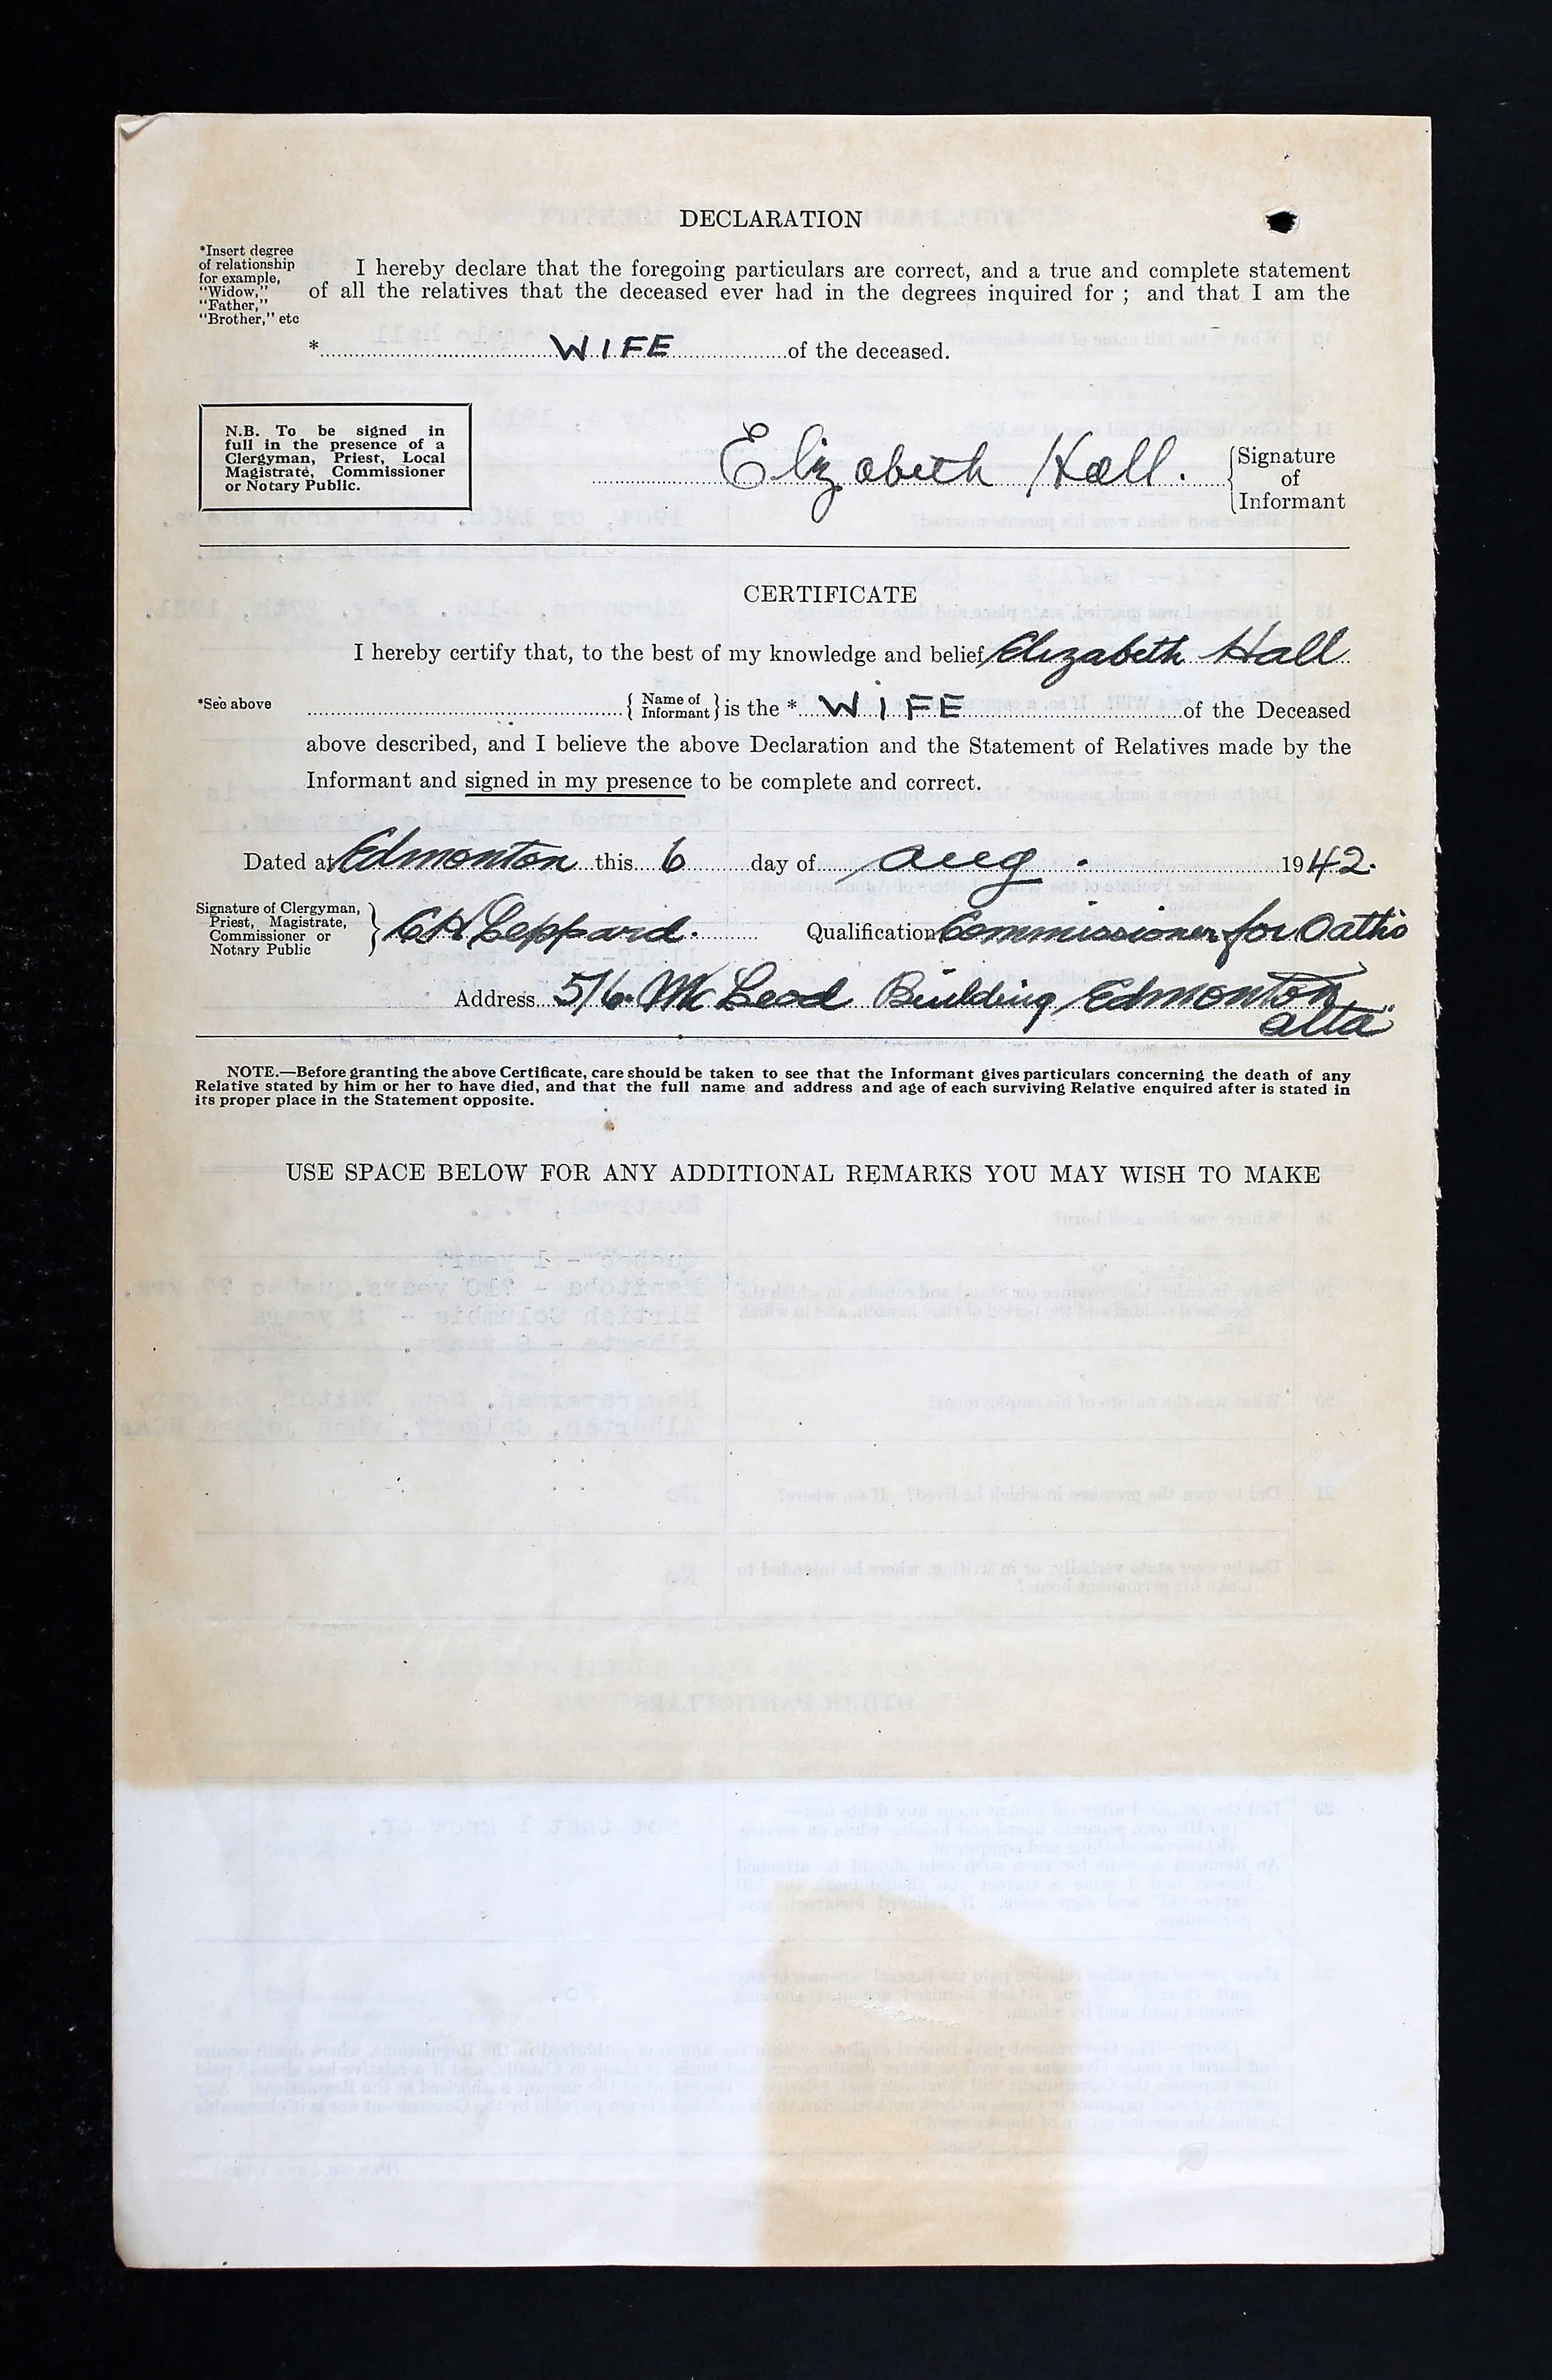 DECLARATION
*Insert degree
of relationship
for example,
"Widow,"
"Father,"
"Brother," etc
I hereby declare that the foregoing particulars are correct, and a true and complete statement
of all the relatives that the deceased ever had in the degrees inquired for ; and that I am the
* WIFE of the deceased.
N.B. To be signed in
full in the presence of a
Clergyman, Priest, Local
Magistrate, Commissioner
or Notary Public.
Elizabeth Hall. {Signature
of
Informant
CERTIFICATE
I hereby certify that, to the best of my knowledge and belief Elizabeth Hall
*See above
{ Name of Informant } is the * WIFE of the Deceased
above described, and I believe the above Declaration and the Statement of Relatives made by the
Informant and signed in my presence to be complete and correct.
Dated at Edmonton this 6 day of Aug. 1942.
Signature of Clergyman,
Priest, Magistrate,
Commissioner or
Notary Public
} CH Leppard. Qualification Commissioner for Oaths
Address 516 McLeod Building Edmonton
Alta
NOTE.—Before granting the above Certificate, care should be taken to see that the Informant gives particulars concerning the death of any
Relative stated by him or her to have died, and that the full name and address and age of each surviving Relative enquired after is stated in
its proper place in the Statement opposite.
USE SPACE BELOW FOR ANY ADDITIONAL REMARKS YOU MAY WISH TO MAKE